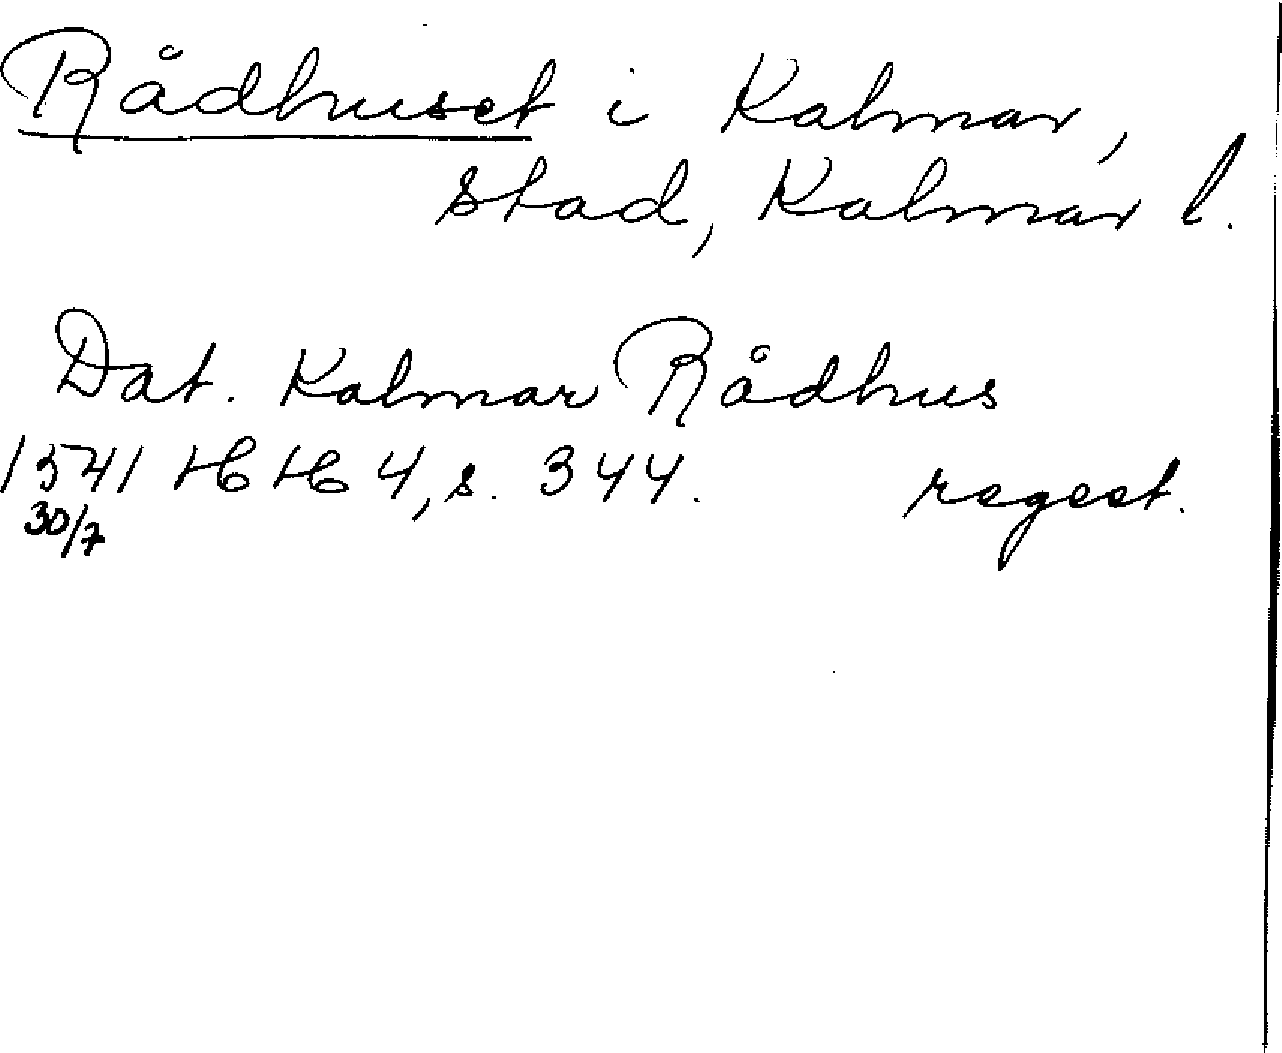 Rådhuset i Kalmar,
stad, Kalmar l.
Dat. Kalmar Rådhus
1541 HH 4, s. 344. regest.
30/7